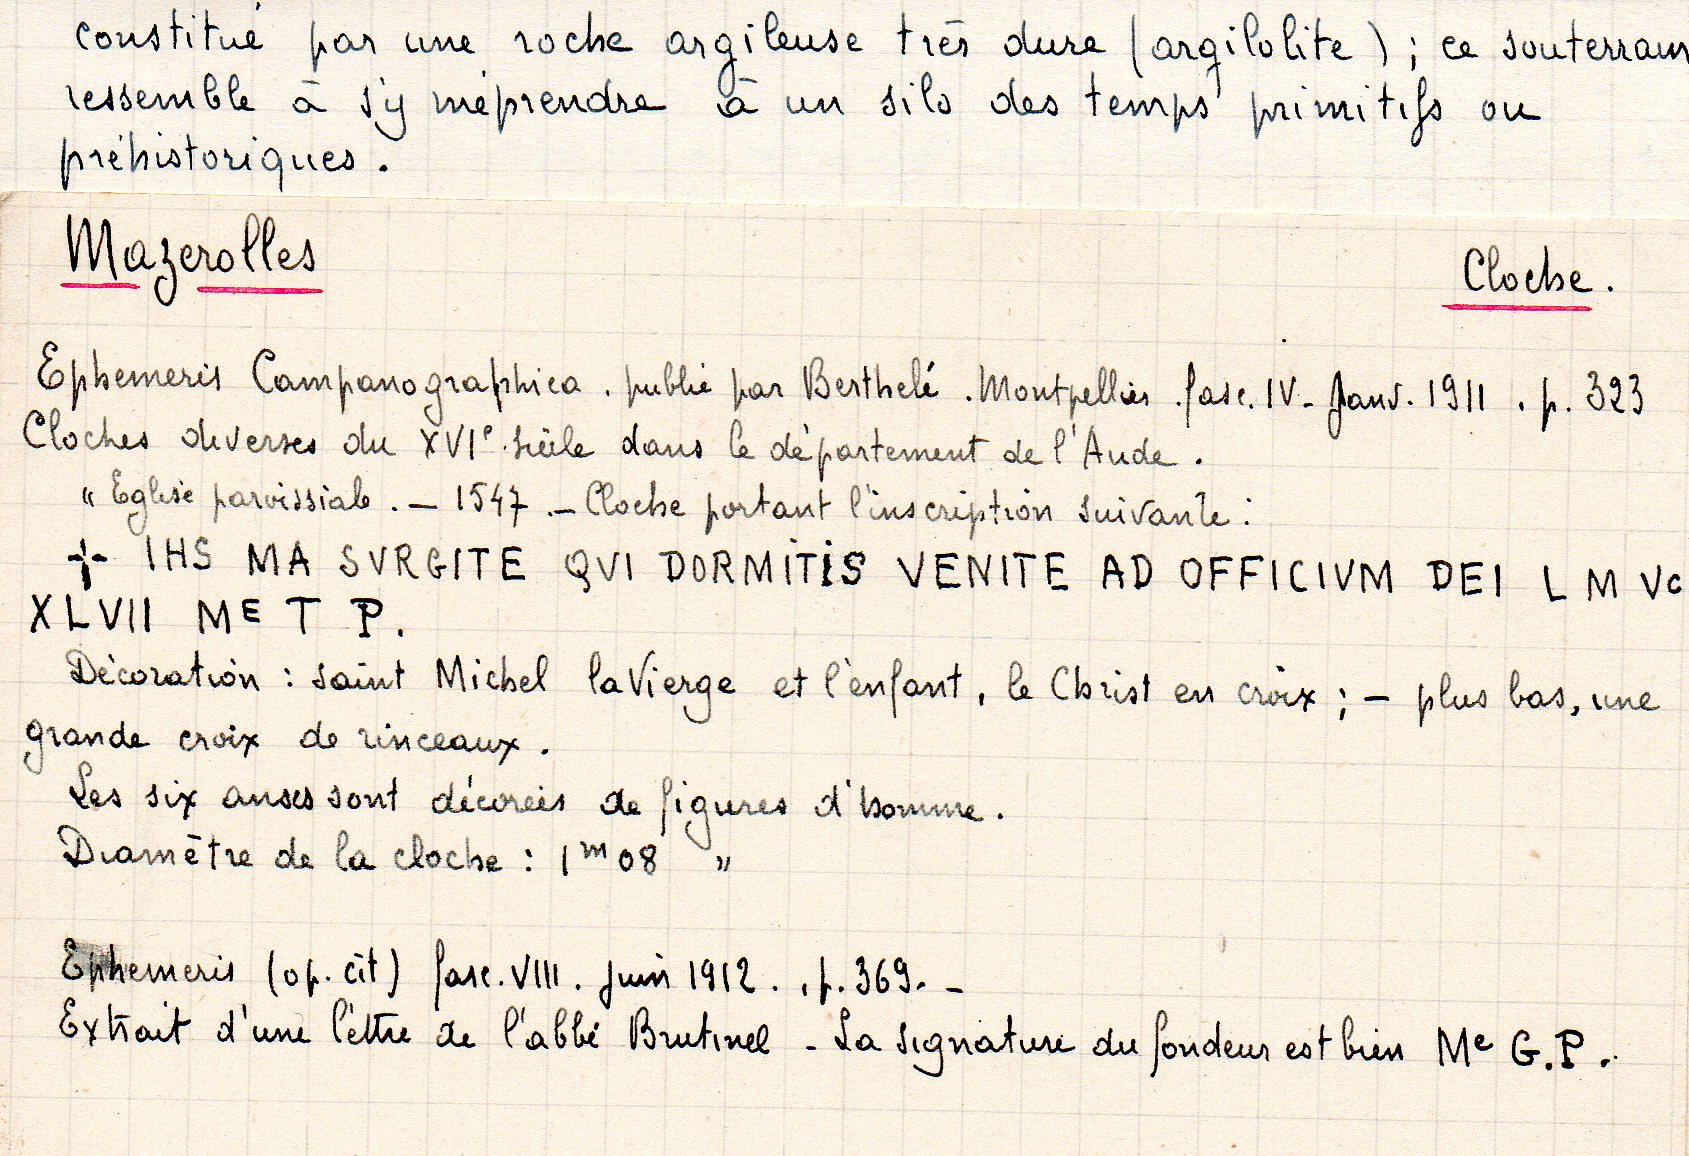 constitué par une roche argileuse très dure (argilolite) ; ce souterrain
ressemble à s'y méprendre à un silo des temps primitifs ou
préhistoriques.
Mazerolles
Cloche.
Ephemeris Campanographica. publié par Berthelé. Montpellier. fasc. IV - Janv. 1911. p. 323
Cloches diverses du XVIe siècle dans le département de l'Aude.
" Eglise paroissiale. - 1547. - Cloche portant l'inscription suivante :
+ IHS MA SVRGITE QVI DORMITIS VENITE AD OFFICIVM DEI L M Vc
XLVII Me T P.
Décoration : saint Michel la Vierge et l'enfant, le Christ en croix ; - plus bas, une
grande croix de rinceaux.
Les six anses sont décorées de figures d'homme.
Diamètre de la cloche : 1m08 "
Ephemeris (op. cit) fasc. VIII. Juin 1912. , p. 369. -
Extrait d'une lettre de l'abbé Brutinel - La signature du fondeur est bien Me G.P.